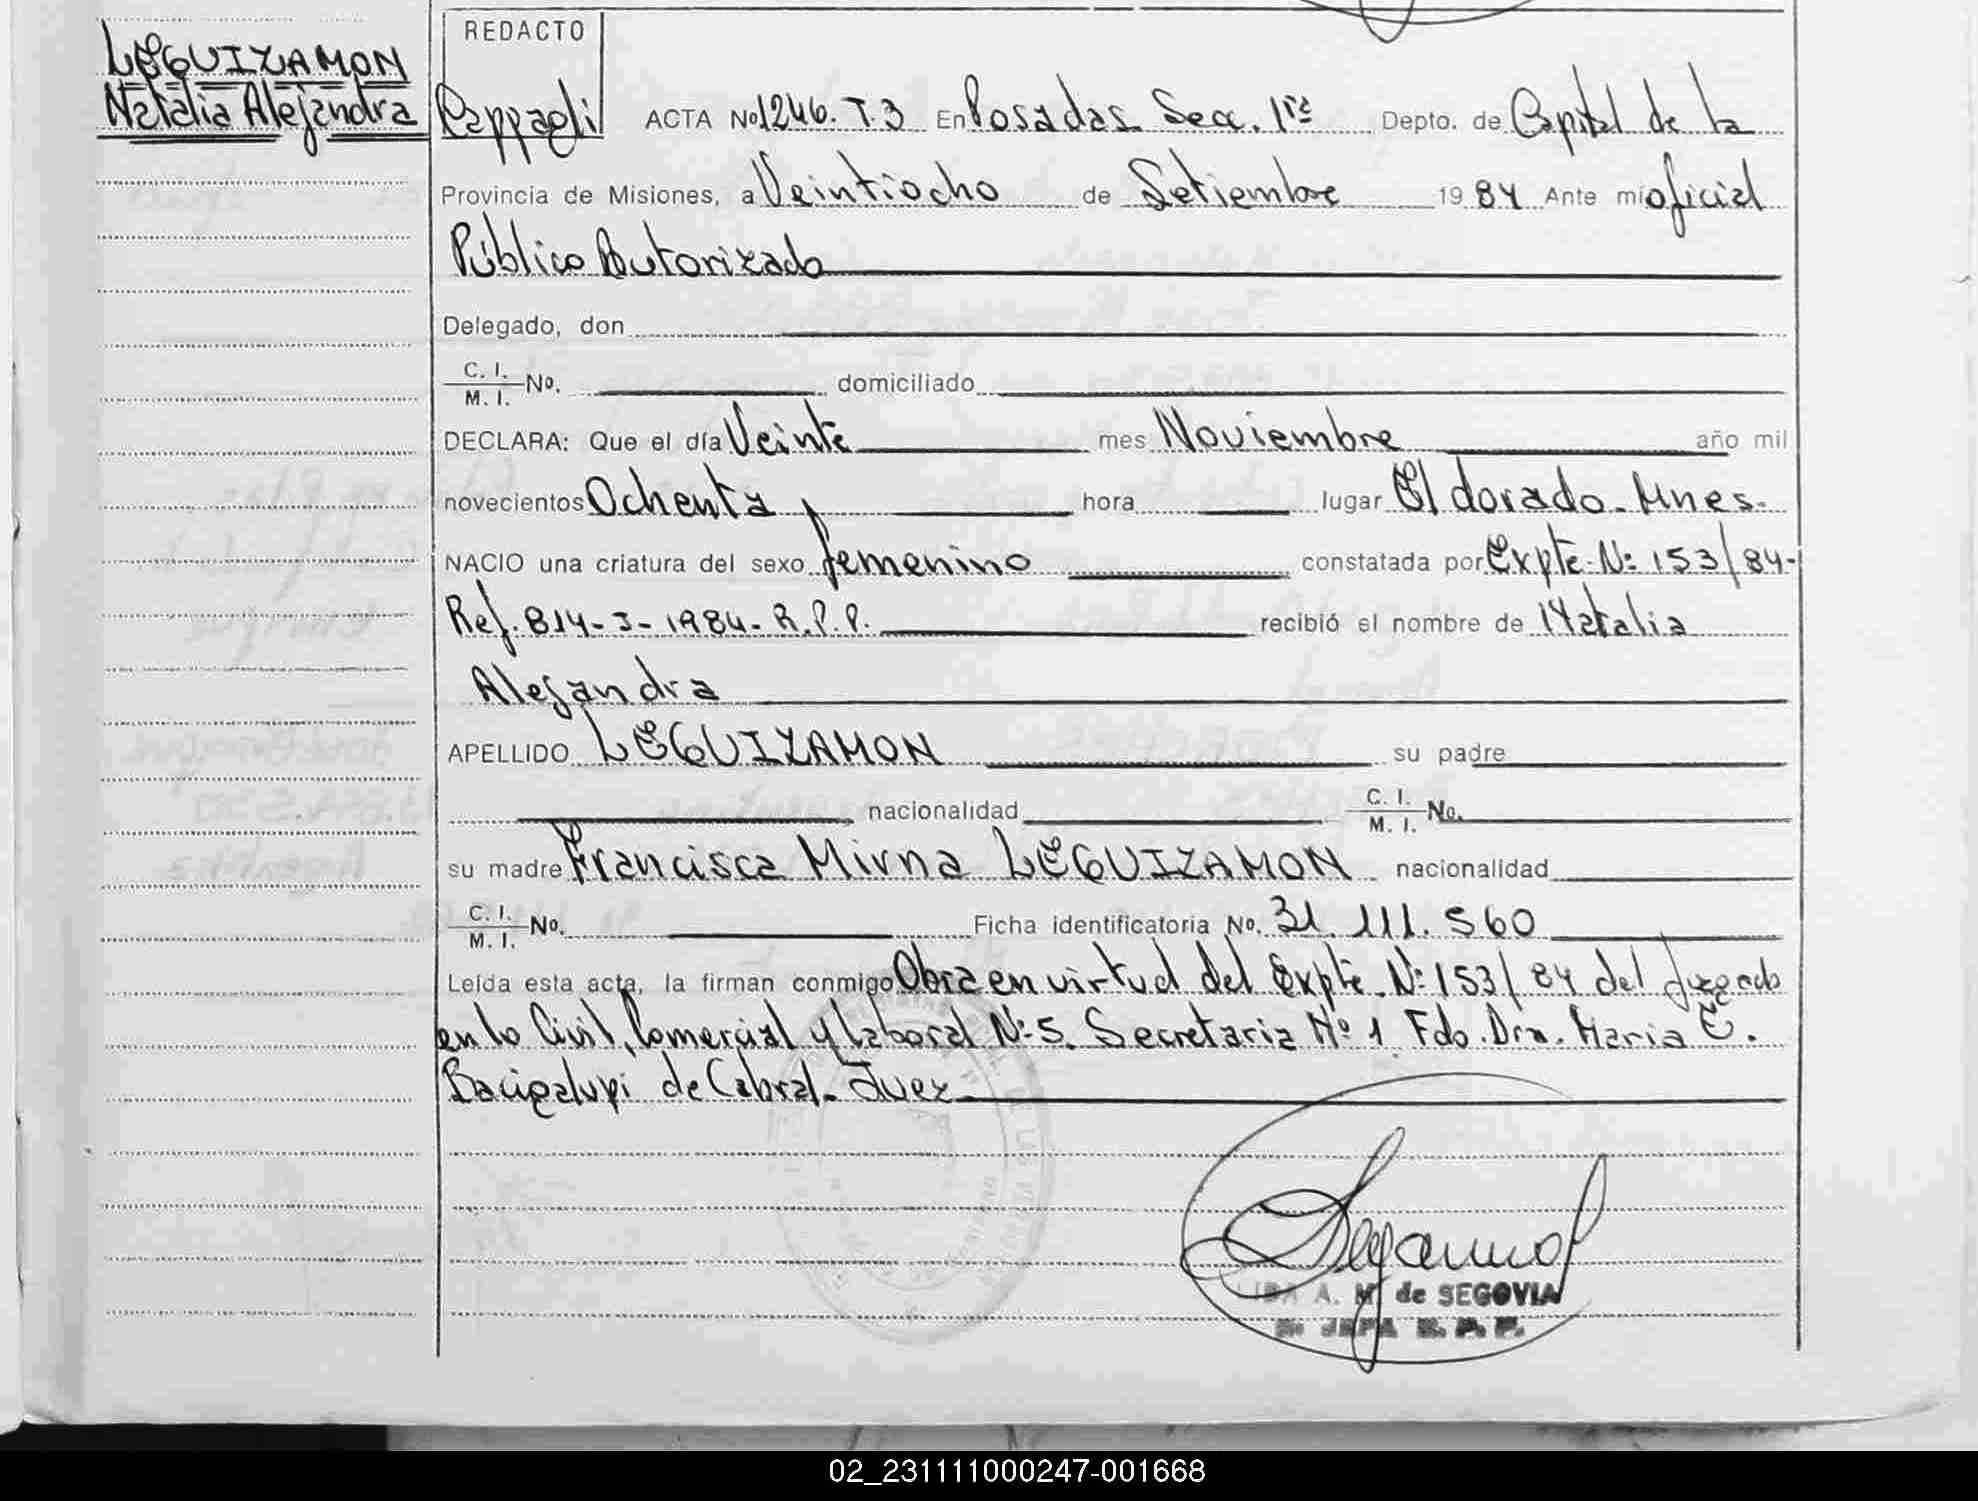 LEGUIZAMON
Natalia Alejandra
REDACTO
Pappagli ACTA No 1246. T. 3 En Posadas Secc. 1ra Depto. de Capital de la
Provincia de Misiones, a Veintiocho de Setiembre 19 84 Ante mi oficial
Público Autorizado
Delegado, don
C. I. / M. I. No. domiciliado
DECLARA: Que el día Veinte mes Noviembre año mil
novecientos Ochenta hora lugar Eldorado. Mnes.
NACIO una criatura del sexo femenino constatada por Expte. Nº 153/84-
Ref. 814-J-1984-R.P.P. recibió el nombre de Natalia
Alejandra
APELLIDO LEGUIZAMON su padre
nacionalidad C. I. / M. I. No.
su madre Francisca Mirna LEGUIZAMON nacionalidad
C. I. / M. I. No. Ficha identificatoria No. 31.111.560
Leída esta acta, la firman conmigo Obra en virtud del Expte. Nº 153/84 del Juzgado
en lo Civil, Comercial y laboral Nº 5. Secretaria Nº 1 Fdo. Dra. Maria E.
Bacigalupi de Cabral. Juez
A. M. de SEGOVIA
JEFA R. P. P.
02_231111000247-001668